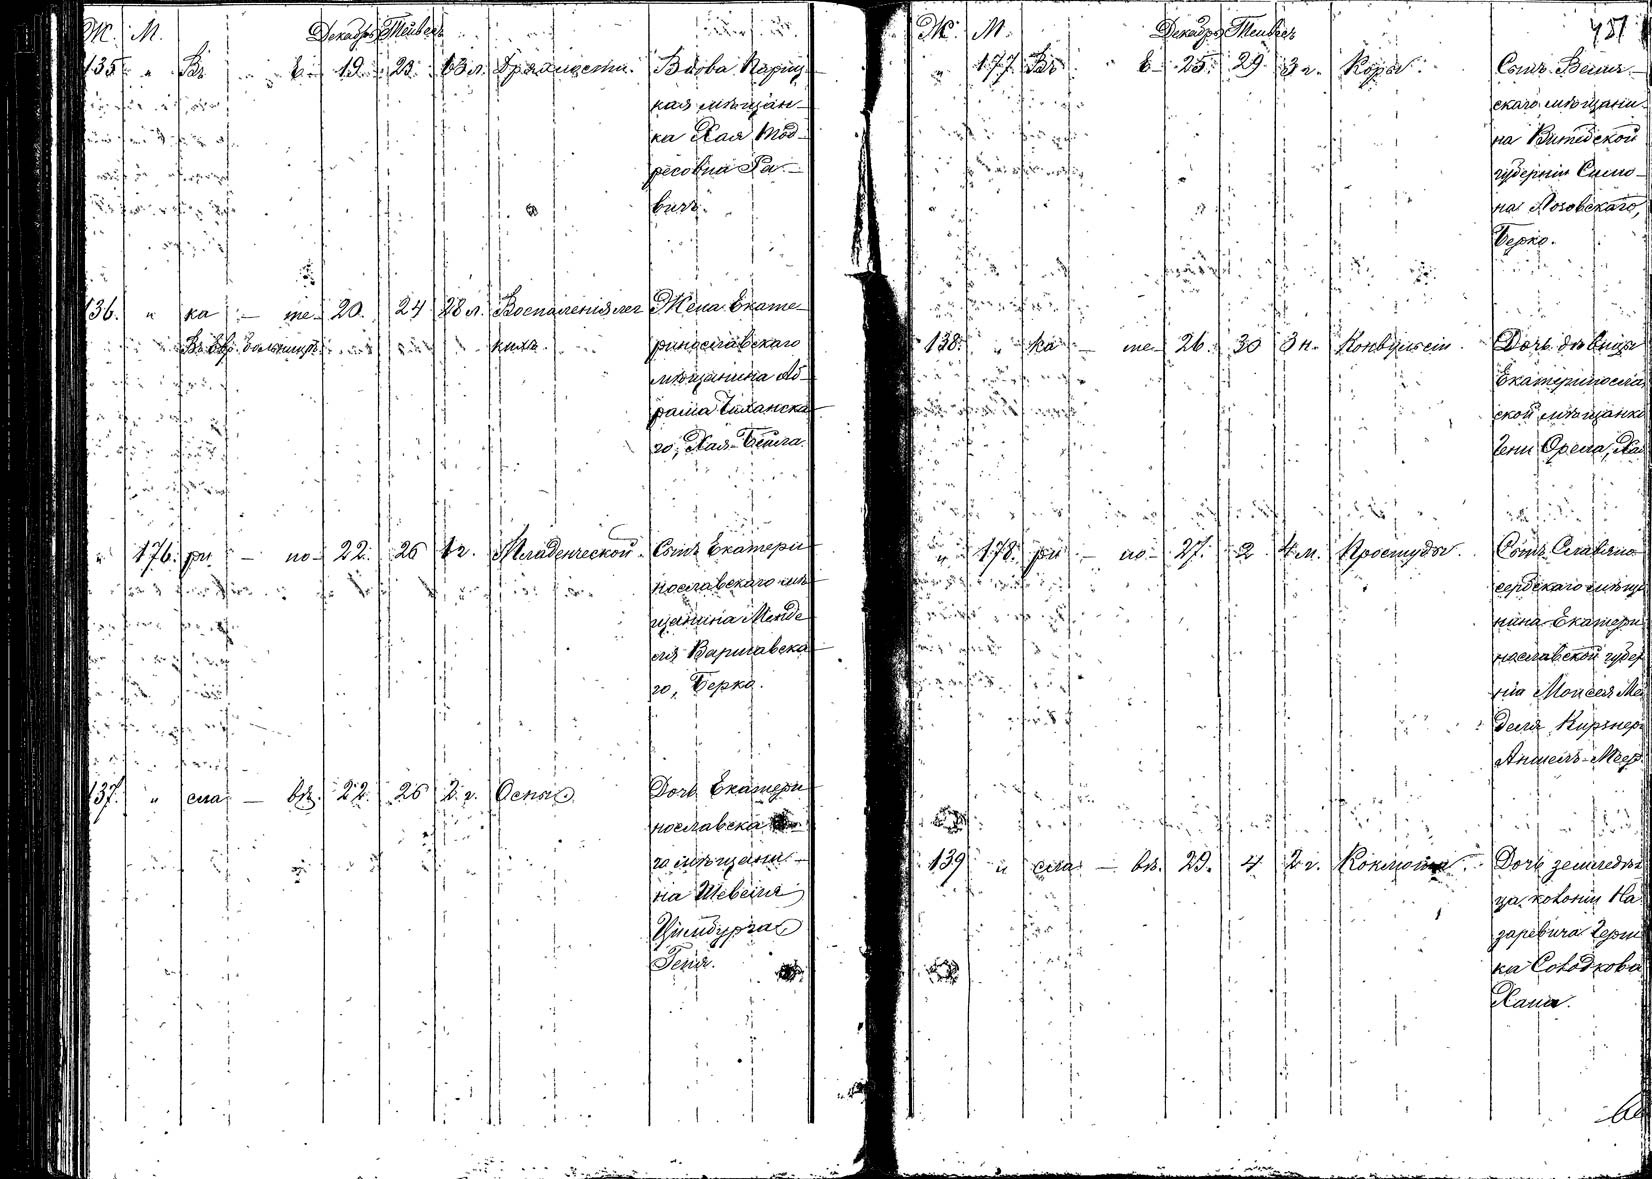 Ж. М. Декабрь Тейвесъ
135 " Въ Е- 19. 23. 63 л. Дряхлости. Вдова Париц-
кая мѣщан-
ка Хая Тод-
ресовна Ра-
вичъ.
136. " ка - те- 20. 24 28 л. Воспаленія лег Жена Екате-
Въ евр. больницѣ кихъ. ринославскаго
мѣщанина Аб-
рама Чиханска-
го, Хая-Бейла.
" 176. ри - но- 22. 26 1 г. Младенческой. Сынъ Екатери-
нославскаго мѣ-
щанина Менде-
ля Варшавска-
го, Берко.
137. " сла - вѣ. 22. 26 2 г. Оспы. Дочь Екатери-
нославска-
го мѣщани-
на Шевеля
Цимбурга
Геня.
Ж. М. Декабрь Тейвесъ
" 177 Въ Е- 25. 29 3 г. Кори. Сынъ Велиж-
скаго мѣщани-
на Витебской
губерніи Симо-
на Лозовскаго,
Берко.
138. " ка - те- 26. 30 3 н. Конвульсіи. Дочь дѣвицы
Екатеринослав
ской мѣщанки
Гени Орела,
" 178. ри - но- 27. 2 4 м. Простуды. Сынъ Славяно-
сербскаго мѣща
нина Екатери-
нославской губер
ніи Моисея Мен
деля Кирзнера
Аншель-Меер.
139 " сла - вѣ. 29. 4 2 г. Коклюша. Дочь земледѣл
ца колоніи На-
заревича Герш
ка Солодкова
Хана.